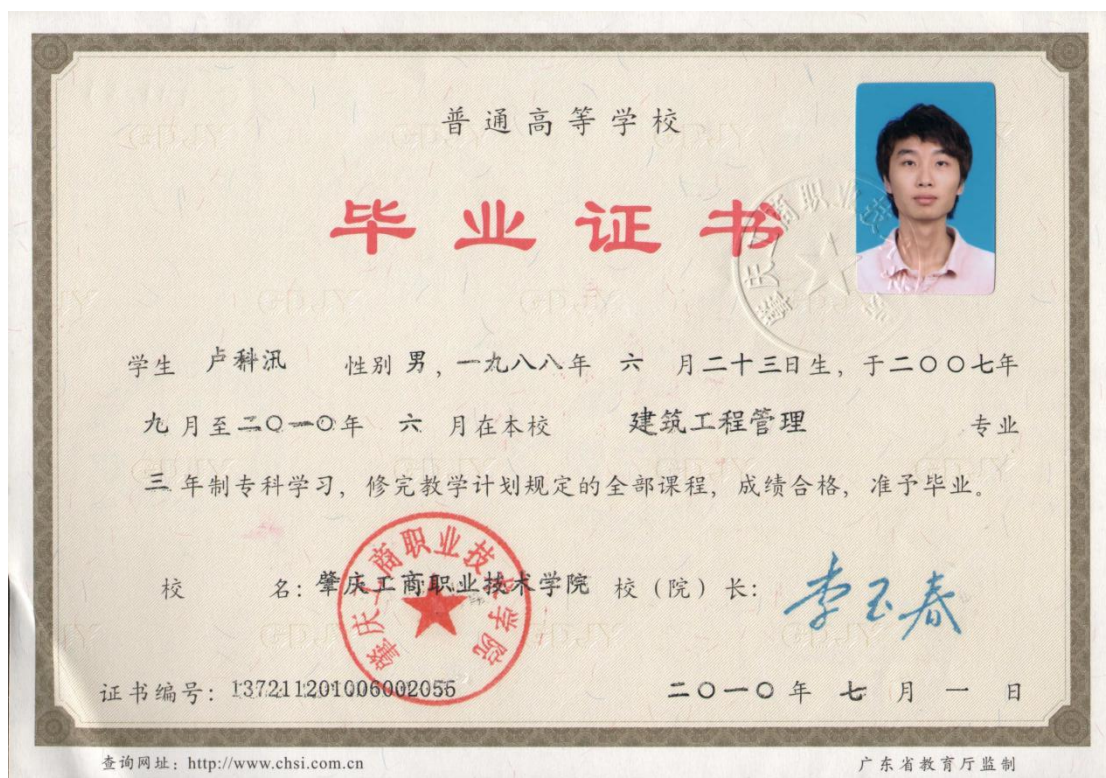 普通高等学校
毕业证书
学生 卢科汛 性别 男，一九八八年 六 月二十三日生，于二〇〇七年
九月至二〇一〇年 六 月在本校 建筑工程管理 专业
三 年制专科学习，修完教学计划规定的全部课程，成绩合格，准予毕业。
校 名：肇庆工商职业技术学院 校（院）长：李玉春
肇庆工商职业技术学院
证书编号：137211201006002055 二〇一〇年 七 月 一 日
查询网址：http://www.chsi.com.cn 广东省教育厅监制